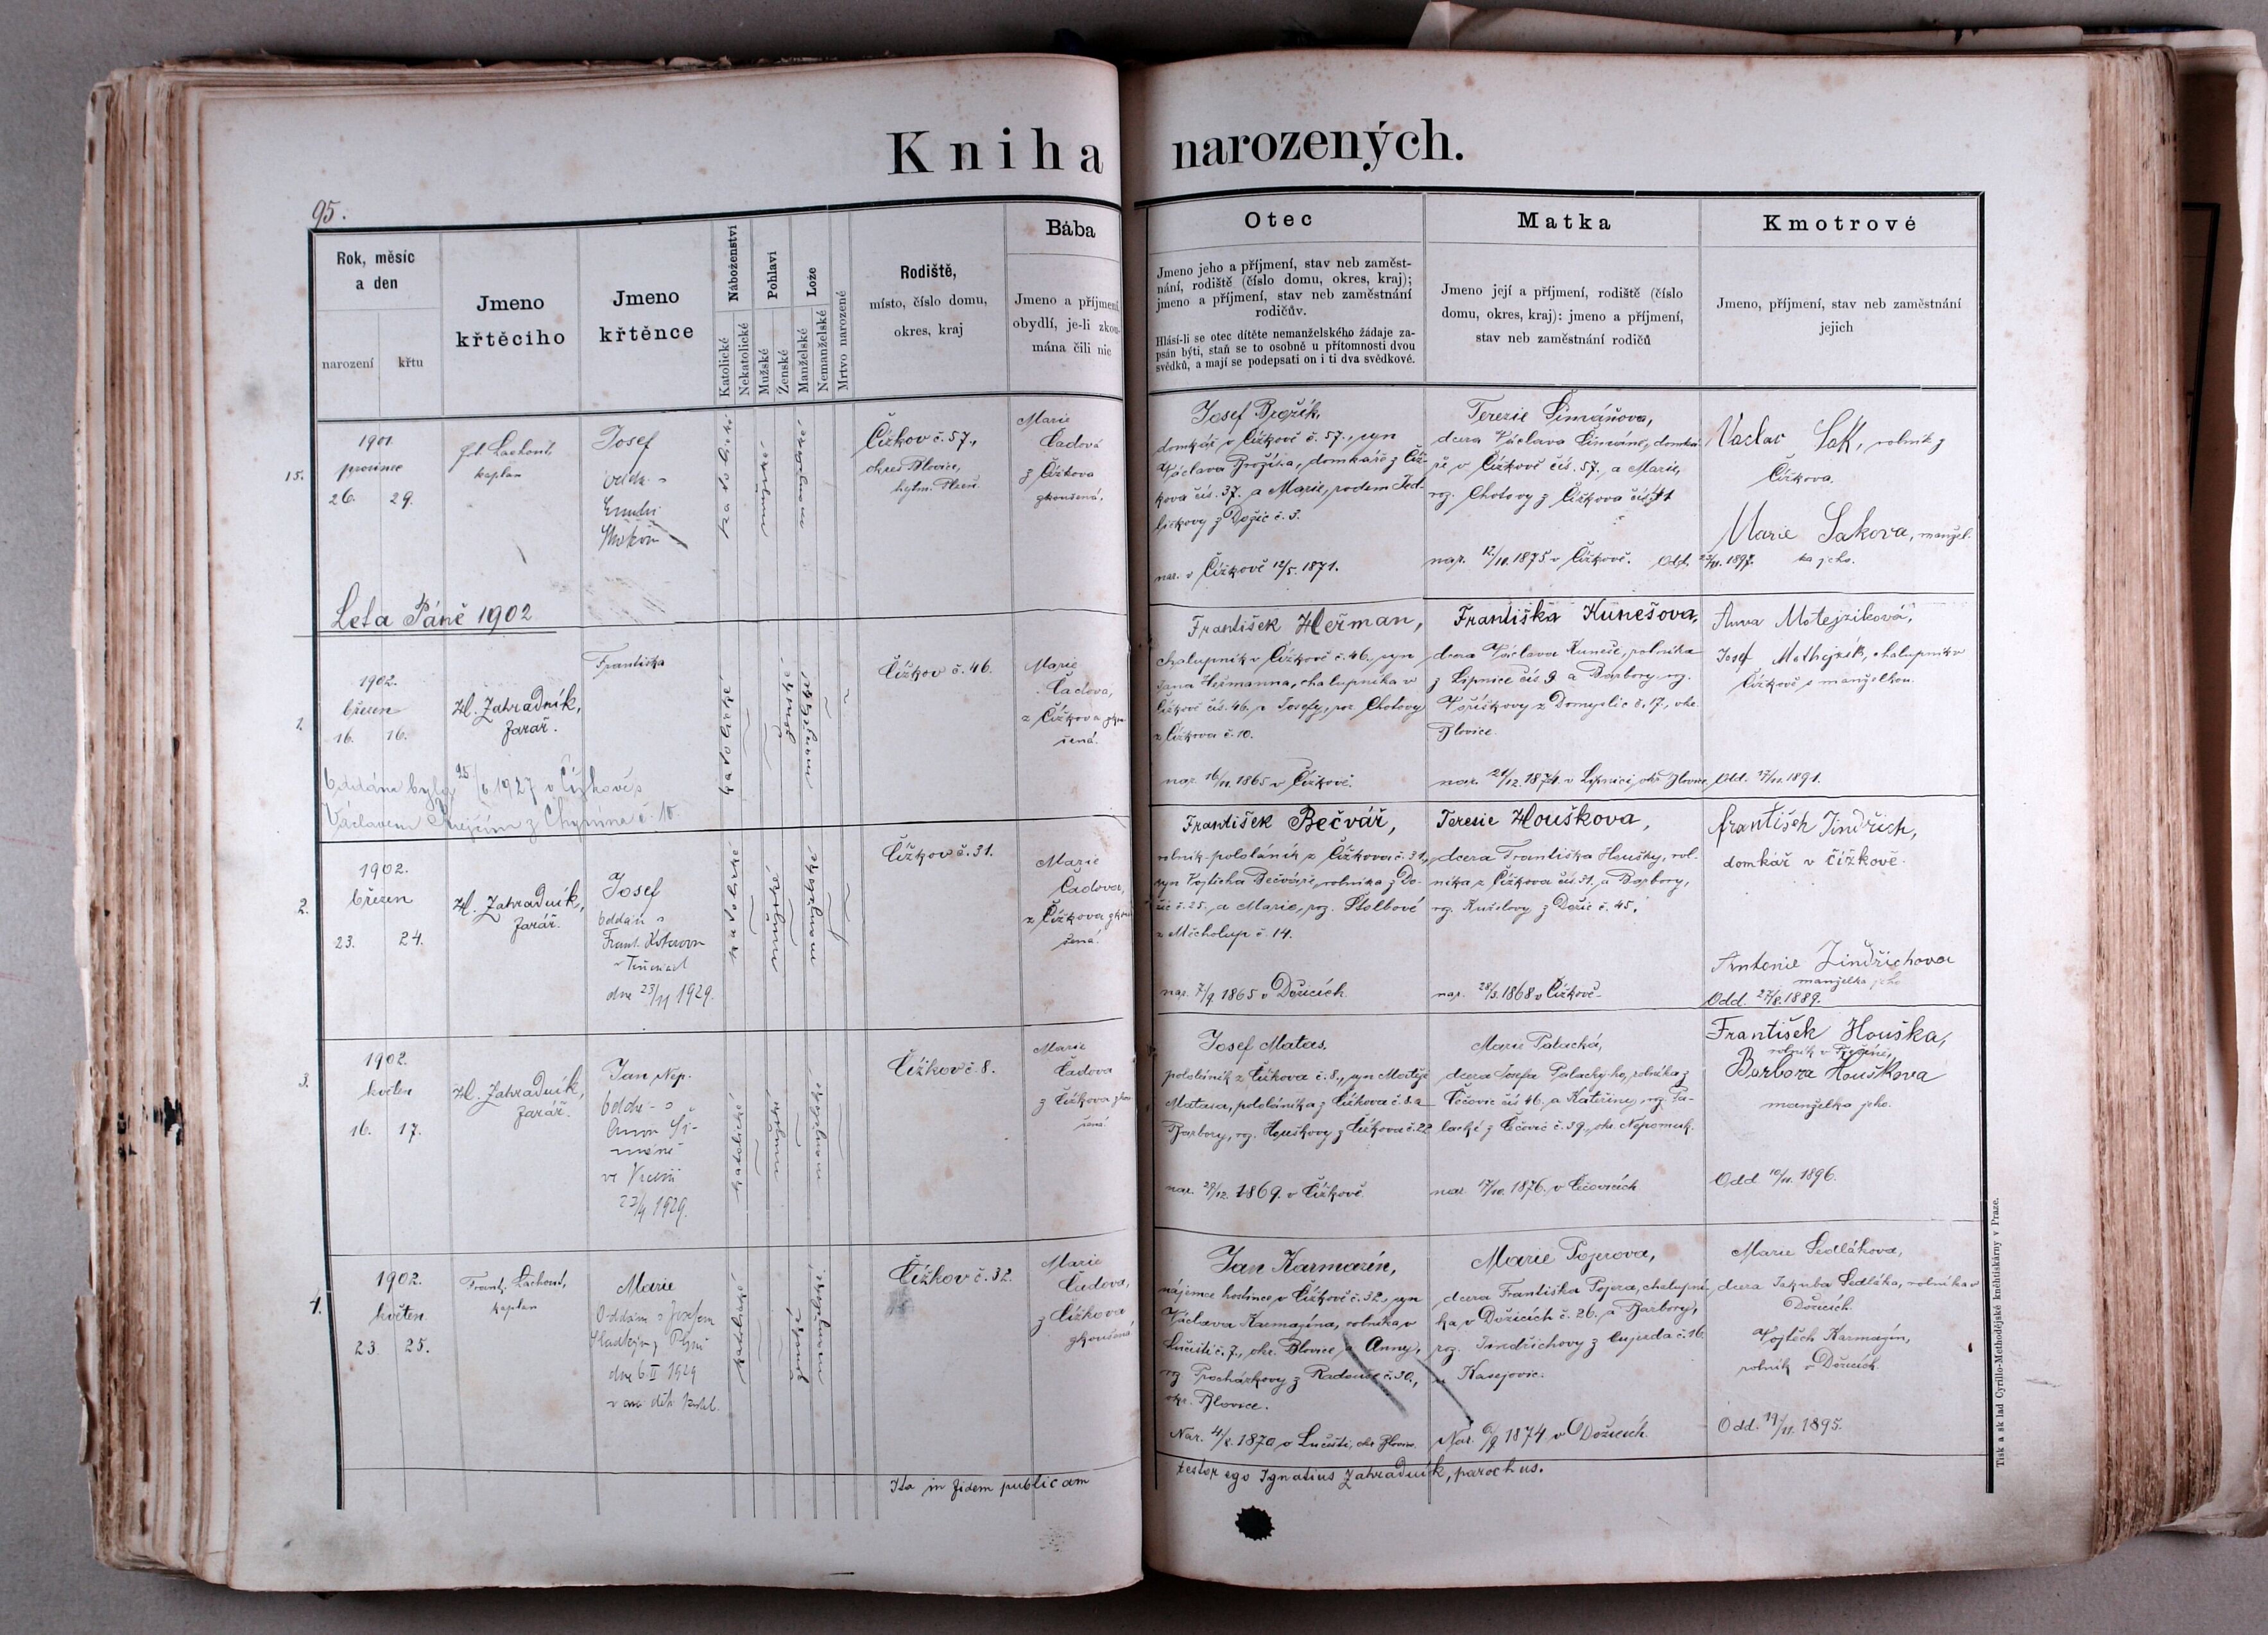 Kniha narozených.
95.
Rok, měsíc
a den
narození
křtu
Jmeno
křtěcího
Jmeno
křtěnce
Náboženství
Katolické
Nekatolické
Pohlaví
Mužské
Ženské
Lože
Manželské
Nemanželské
Mrtvo narozené
Rodiště,
místo, číslo domu,
okres, kraj
Bába
Jmeno a příjmení
obydlí, je-li zkou-
mána čili nic
Otec
Jmeno jeho a příjmení, stav neb zaměst-
nání, rodiště (číslo domu, okres, kraj);
jmeno a příjmení, stav neb zaměstnání
rodičův.
Hlásí-li se otec dítěte nemanželského žádaje za-
psán býti, staň se to osobně u přítomnosti dvou
svědků, a mají se podepsati on i ti dva svědkové.
Matka
Jmeno její a příjmení, rodiště (číslo
domu, okres, kraj): jmeno a příjmení,
stav neb zaměstnání rodičů
Kmotrové
Jmeno, příjmení, stav neb zaměstnání
jejich
15.
1901.
prosinec
26. 29.
Lachout,
kaplan
Josef
katolické
mužské
manželské
Čížkov č. 57.,
okres Blovice,
Marie
Čadová
z Čížkova
zkoušená.
Josef Brožík,
domkář v Čížkově č. 57., syn
Václava Brožíka, domkáře z Číž-
kova čís. 37. a Marie, rodem Jed-
ličkovy z Dožic č. 3.
nar. v Čížkově 12/5. 1871.
Terezie Šimáňova,
dcera Václava Šimáně, domká-
ře v Čížkově čís. 57. a Marie,
roz. Chotovy z Čížkova čís.
nar. 12/10. 1875 v Čížkově. Odd. 23/11. 1897.
Vaclav Sak, rolník z
Čížkova.
Marie Sakova, manžel-
ka jeho.
Leta Páně 1902
1.
1902.
březen
16. 16.
H. Zahradník,
farář.
Františka
katolické
ženské
manželské
Čížkov č. 46.
Marie
Čadova,
z Čížkova zkou-
šená.
Oddána byla 25/6 1927 v Čížkově s
Václavem z Chynína č. 10.
František Heřman,
chalupník v Čížkově č. 46., syn
Jana Heřmanna, chalupníka v
Čížkově čís. 46. a Josefy, roz. Chotovy
z Čížkova č. 10.
nar. 16/11. 1865 v Čížkově.
Františka Kunešova,
dcera Václava Kuneše, rolníka
z Lipnice čís. 9 a Barbory, roz.
Voříškovy z Domyslic č. 17., okr.
Blovice.
nar. 21/12. 1874. v Lipnici, okr. Blovice,
Anna Motejzíková,
Josef Mathejzík, chalupník v
Čížkově s manželkou.
Odd. 17/11. 1891.
2.
1902.
březen
23. 24.
H. Zahradník,
farář.
Josef
oddán s
Frant. Kotorovou
dne 23/11 1929.
katolické
mužské
manželské
Čížkov č. 31.
Marie
Čadova,
z Čížkova zkou-
šená.
František Bečvář,
rolník-pololáník z Čížkova č. 31.,
syn Vojtěcha Bečváře, rolníka z Do-
žic č. 25., a Marie, roz. Štolbové
z Měcholup č. 14.
nar. 7/9. 1865 v Dožicích.
Terezie Houškova,
dcera Františka Houšky, rol-
níka z Čížkova čís. 31. a Barbory,
roz. Kuželovy z Dožic č. 45.
nar. 28/3. 1868 v Čížkově.
František Jindřich,
domkář v Čížkově.
Antonie Jindřichova
manželka jeho
Odd. 27/8. 1889.
3.
1902.
květen
16. 17.
H. Zahradník,
farář.
Jan Nep.
oddán s
Annou Ši-
23/4 1929.
katolické
mužské
manželské
Čížkov č. 8.
Marie
Čadova
z Čížkova zkou-
šená.
Josef Matas,
pololáník z Čížkova č. 8., syn Matěje
Matasa, pololáníka z Čížkova č. 8. a
Barbory, roz. Houškovy z Čížkova č. 22
nar. 29/12. 1869. v Čížkově.
Marie Palacká,
dcera Josefa Palackýho, rolníka z
Čečovic čís 46. a Kateřiny, roz. Pa-
lacké z Čečovic č. 39., okr. Nepomuk.
nar. 17/10. 1876. v Čečovicích
František Houška,
Barbora Houškova
manželka jeho.
Odd 10/11. 1896.
4.
1902.
květen
23. 25.
Frant. Lachout,
kaplan
Marie
Oddána s Josefem
Sladkým z Plzně
dne 6. II 1929
katolické
ženské
manželské
Čížkov č. 32.
Marie
Čadova,
z Čížkova
zkoušená
Jan Karmazín,
nájemce hostince v Čížkově č. 32., syn
Václava Karmazína, rolníka v
Lučišti č. 7., okr. Blovice a Anny,
roz Procházkovy z Radošic č. 30.,
okr. Blovice.
Nar. 4/8. 1870 v Lučišti, okr. Blovice.
Marie Pojerova,
dcera Františka Pojera, chalupní-
ka v Dožicích č. 26. a Barbory,
roz. Jindřichovy z Oujezda č. 16
u Kasejovic.
Nar. 6/9 1874 v Dožicích.
Marie Sedlákova,
dcera Jakuba Sedláka, rolníka v
Dožicích.
Vojtěch Karmazín,
rolník v Dožicích.
Odd. 19/11. 1895.
Ita in fidem publicam testor ego Ignatius Zahradník, parochus.
Tisk a sklad Cyrillo-Methodějské knihtiskárny v Praze.